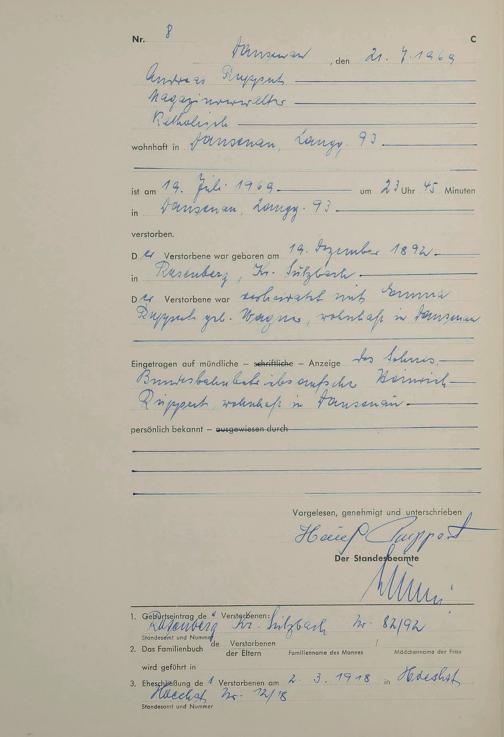 Nr. 8 C
Dansenau, den 21. 7. 1969
Andreas Ruppert
Magazinverwalter
Katholisch
wohnhaft in Dansenau, Langg. 93
ist am 19. Juli 1969 um 23 Uhr 45 Minuten
in Dansenau, Langg. 93
verstorben.
Der Verstorbene war geboren am 19. Dezember 1892
in Rosenberg, Kr. Sulzbach
Der Verstorbene war verheiratet mit Emma
Ruppert geb. Wagner, wohnhaft in Dansenau
Eingetragen auf mündliche – schriftliche – Anzeige des Sohnes
Bundesbahnbetriebsaufseher Heinrich
Ruppert, wohnhaft in Dansenau
persönlich bekannt – ausgewiesen durch
Vorgelesen, genehmigt und unterschrieben
Ruppert
Der Standesbeamte
1. Geburtseintrag des Verstorbenen:
Rosenberg Kr. Sulzbach Nr. 82/92
Standesamt und Nummer
2. Das Familienbuch de Verstorbenen
der Eltern Familienname des Mannes / Mädchenname der Frau
wird geführt in
3. Eheschließung de Verstorbenen am 2. 3. 1918 in Hoechst
Hoechst Nr. 12/18
Standesamt und Nummer